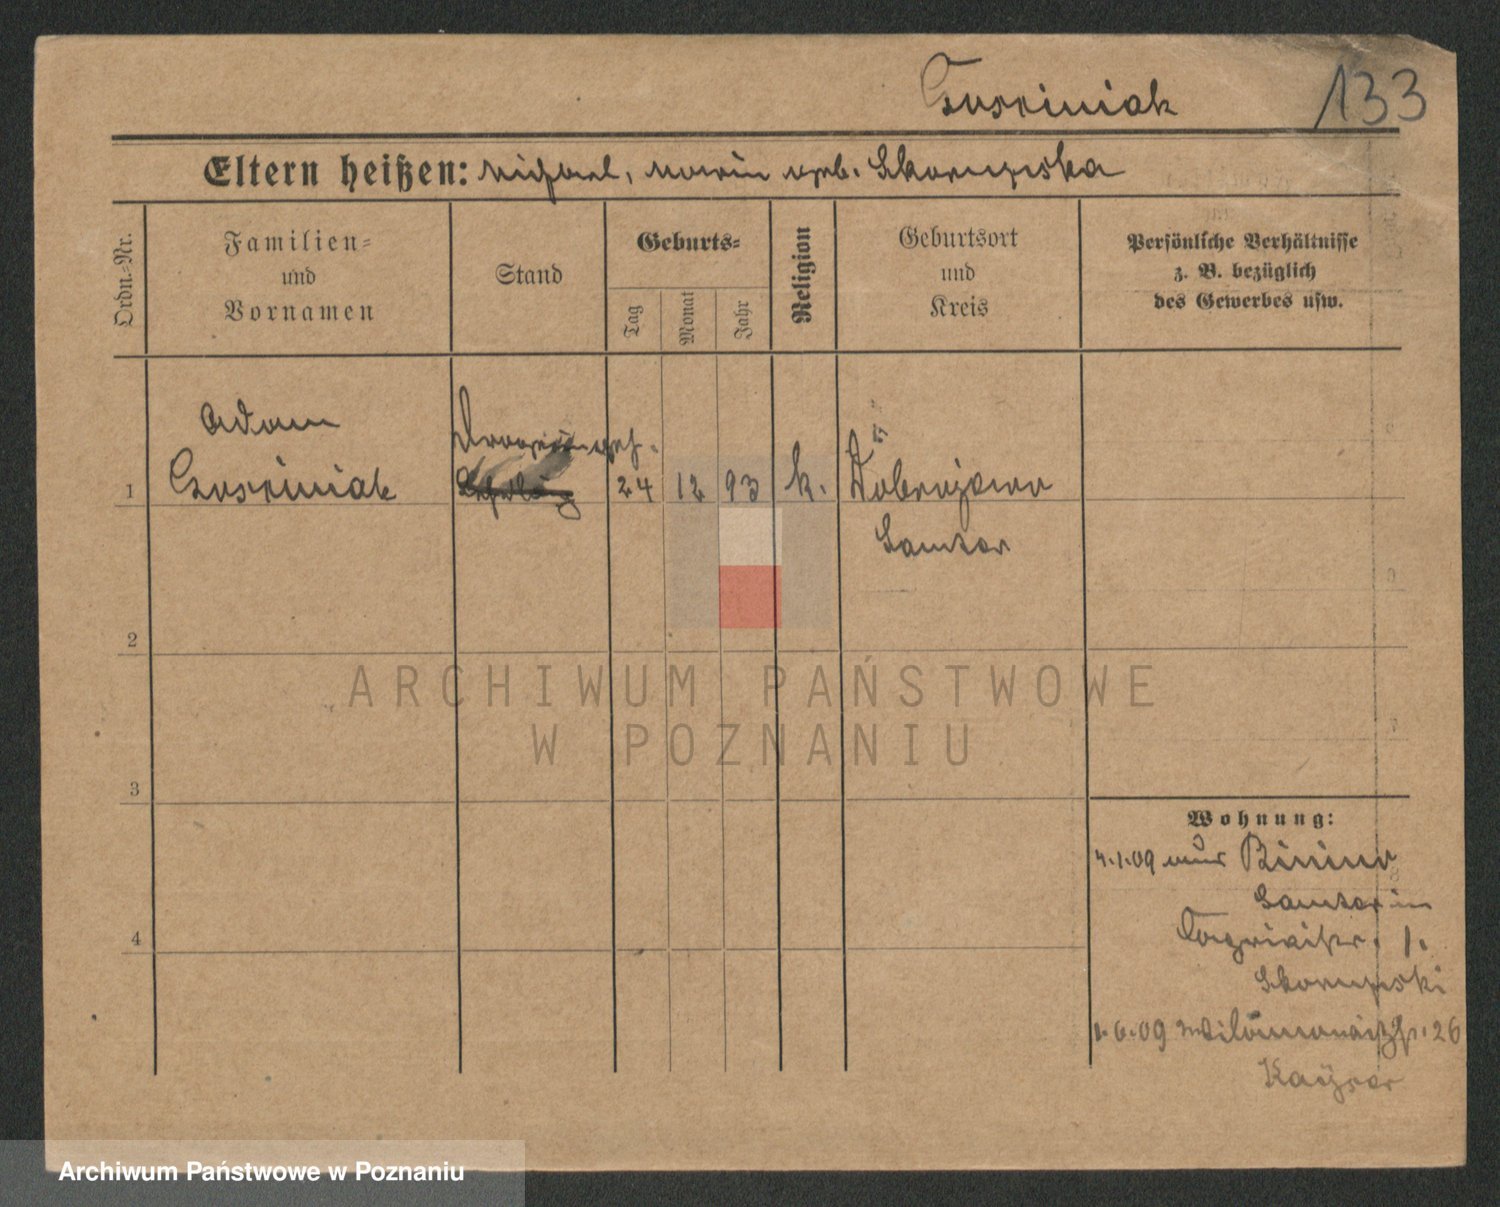 133
Eltern heißen: Michael, Maria geb. Skorupska
Ordn.-Nr.
Familien-
und
Vornamen
Stand
Geburts-
Tag
Monat
Jahr
Religion
Geburtsort
und
Kreis
Persönliche Verhältnisse
z. B. bezüglich
des Gewerbes usw.
Adam
1
24 12 93 k. Dobrojewo
Samter
2
3
4
Wohnung:
4.1.09 aus Binino
Samter in
Skorupski
1.6.09 26
Kayser
ARCHIWUM PAŃSTWOWE
W POZNANIU
Archiwum Państwowe w Poznaniu